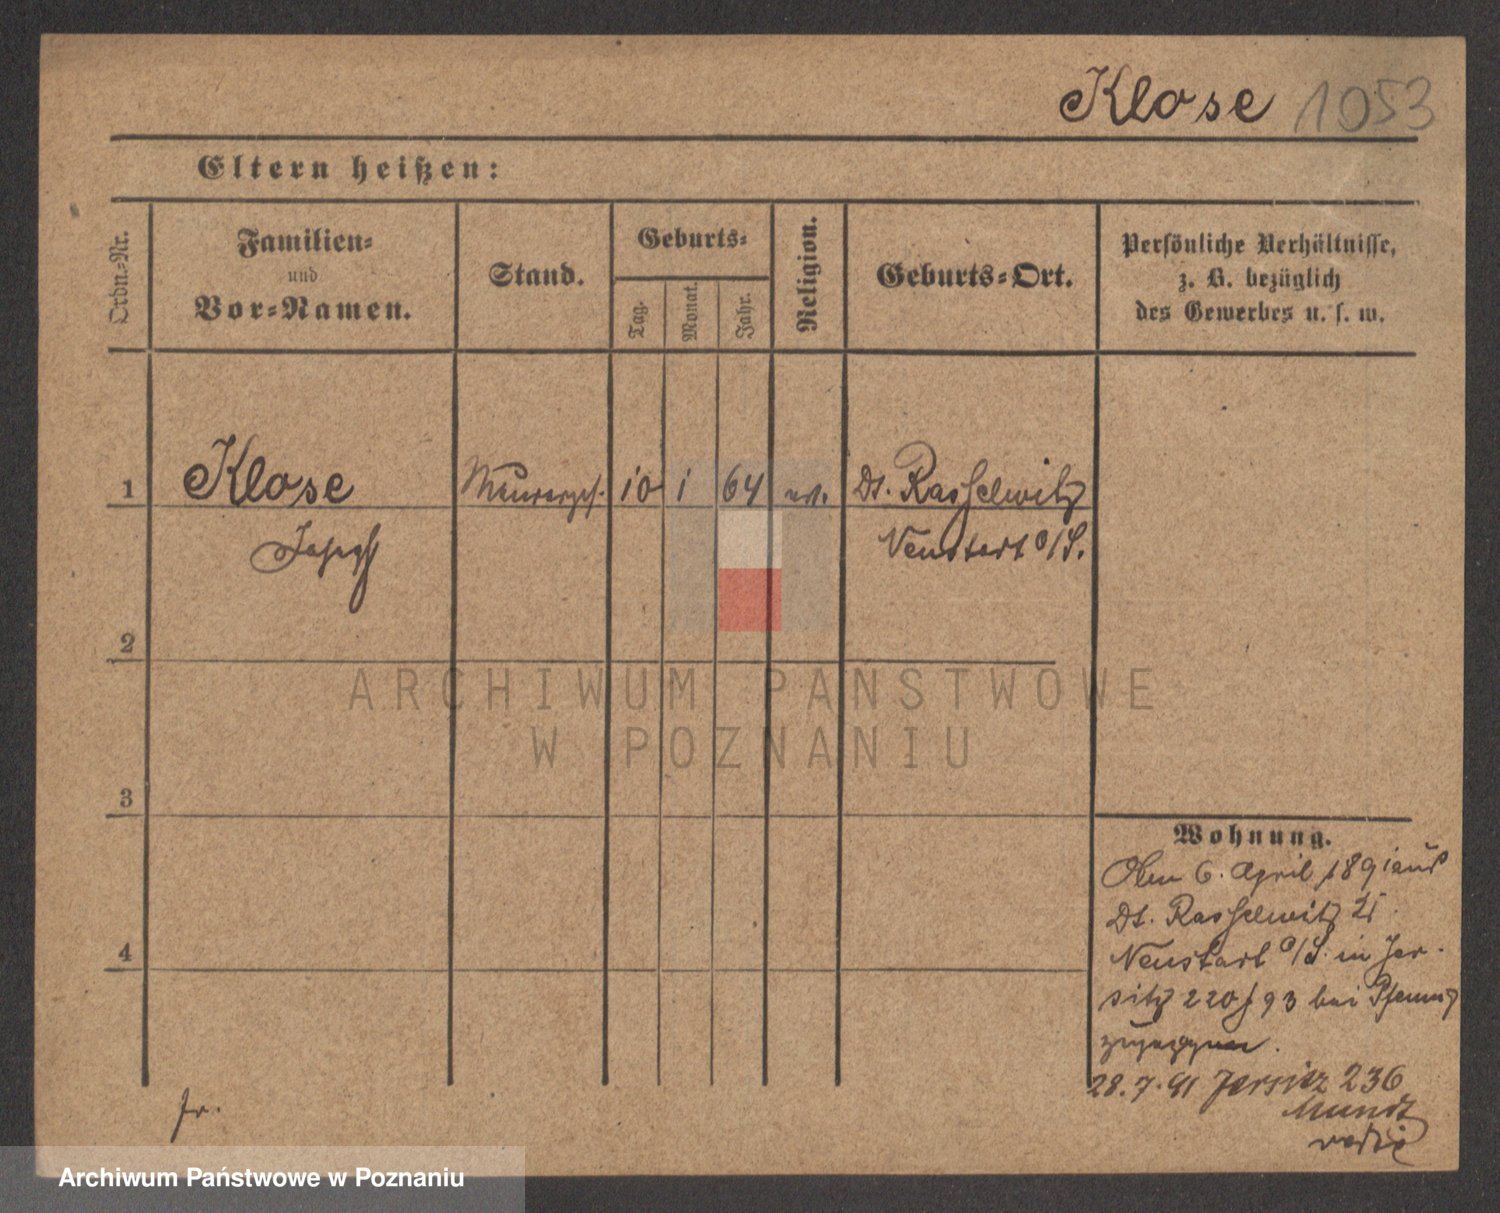 Klose 1053
Eltern heißen:
Ordn.-Nr.
Familien-
und
Vor-Namen.
Stand.
Geburts-
Tag.
Monat.
Jahr.
Religion.
Geburts-Ort.
Persönliche Verhältnisse,
z. B. bezüglich
des Gewerbes u. s. w.
1 Klose Maurerges. 10 1 64 Dt. Rasselwitz
Joseph Neustadt O/S.
2
3
4
Wohnung.
6. April 1891 aus
Dt. Rasselwitz
Neustadt O/S. in Jer-
sitz 220/93 bei
zugezogen.
28.7.91 Jersitz 236
Archiwum Państwowe w Poznaniu
ARCHIWUM PAŃSTWOWE
W POZNANIU